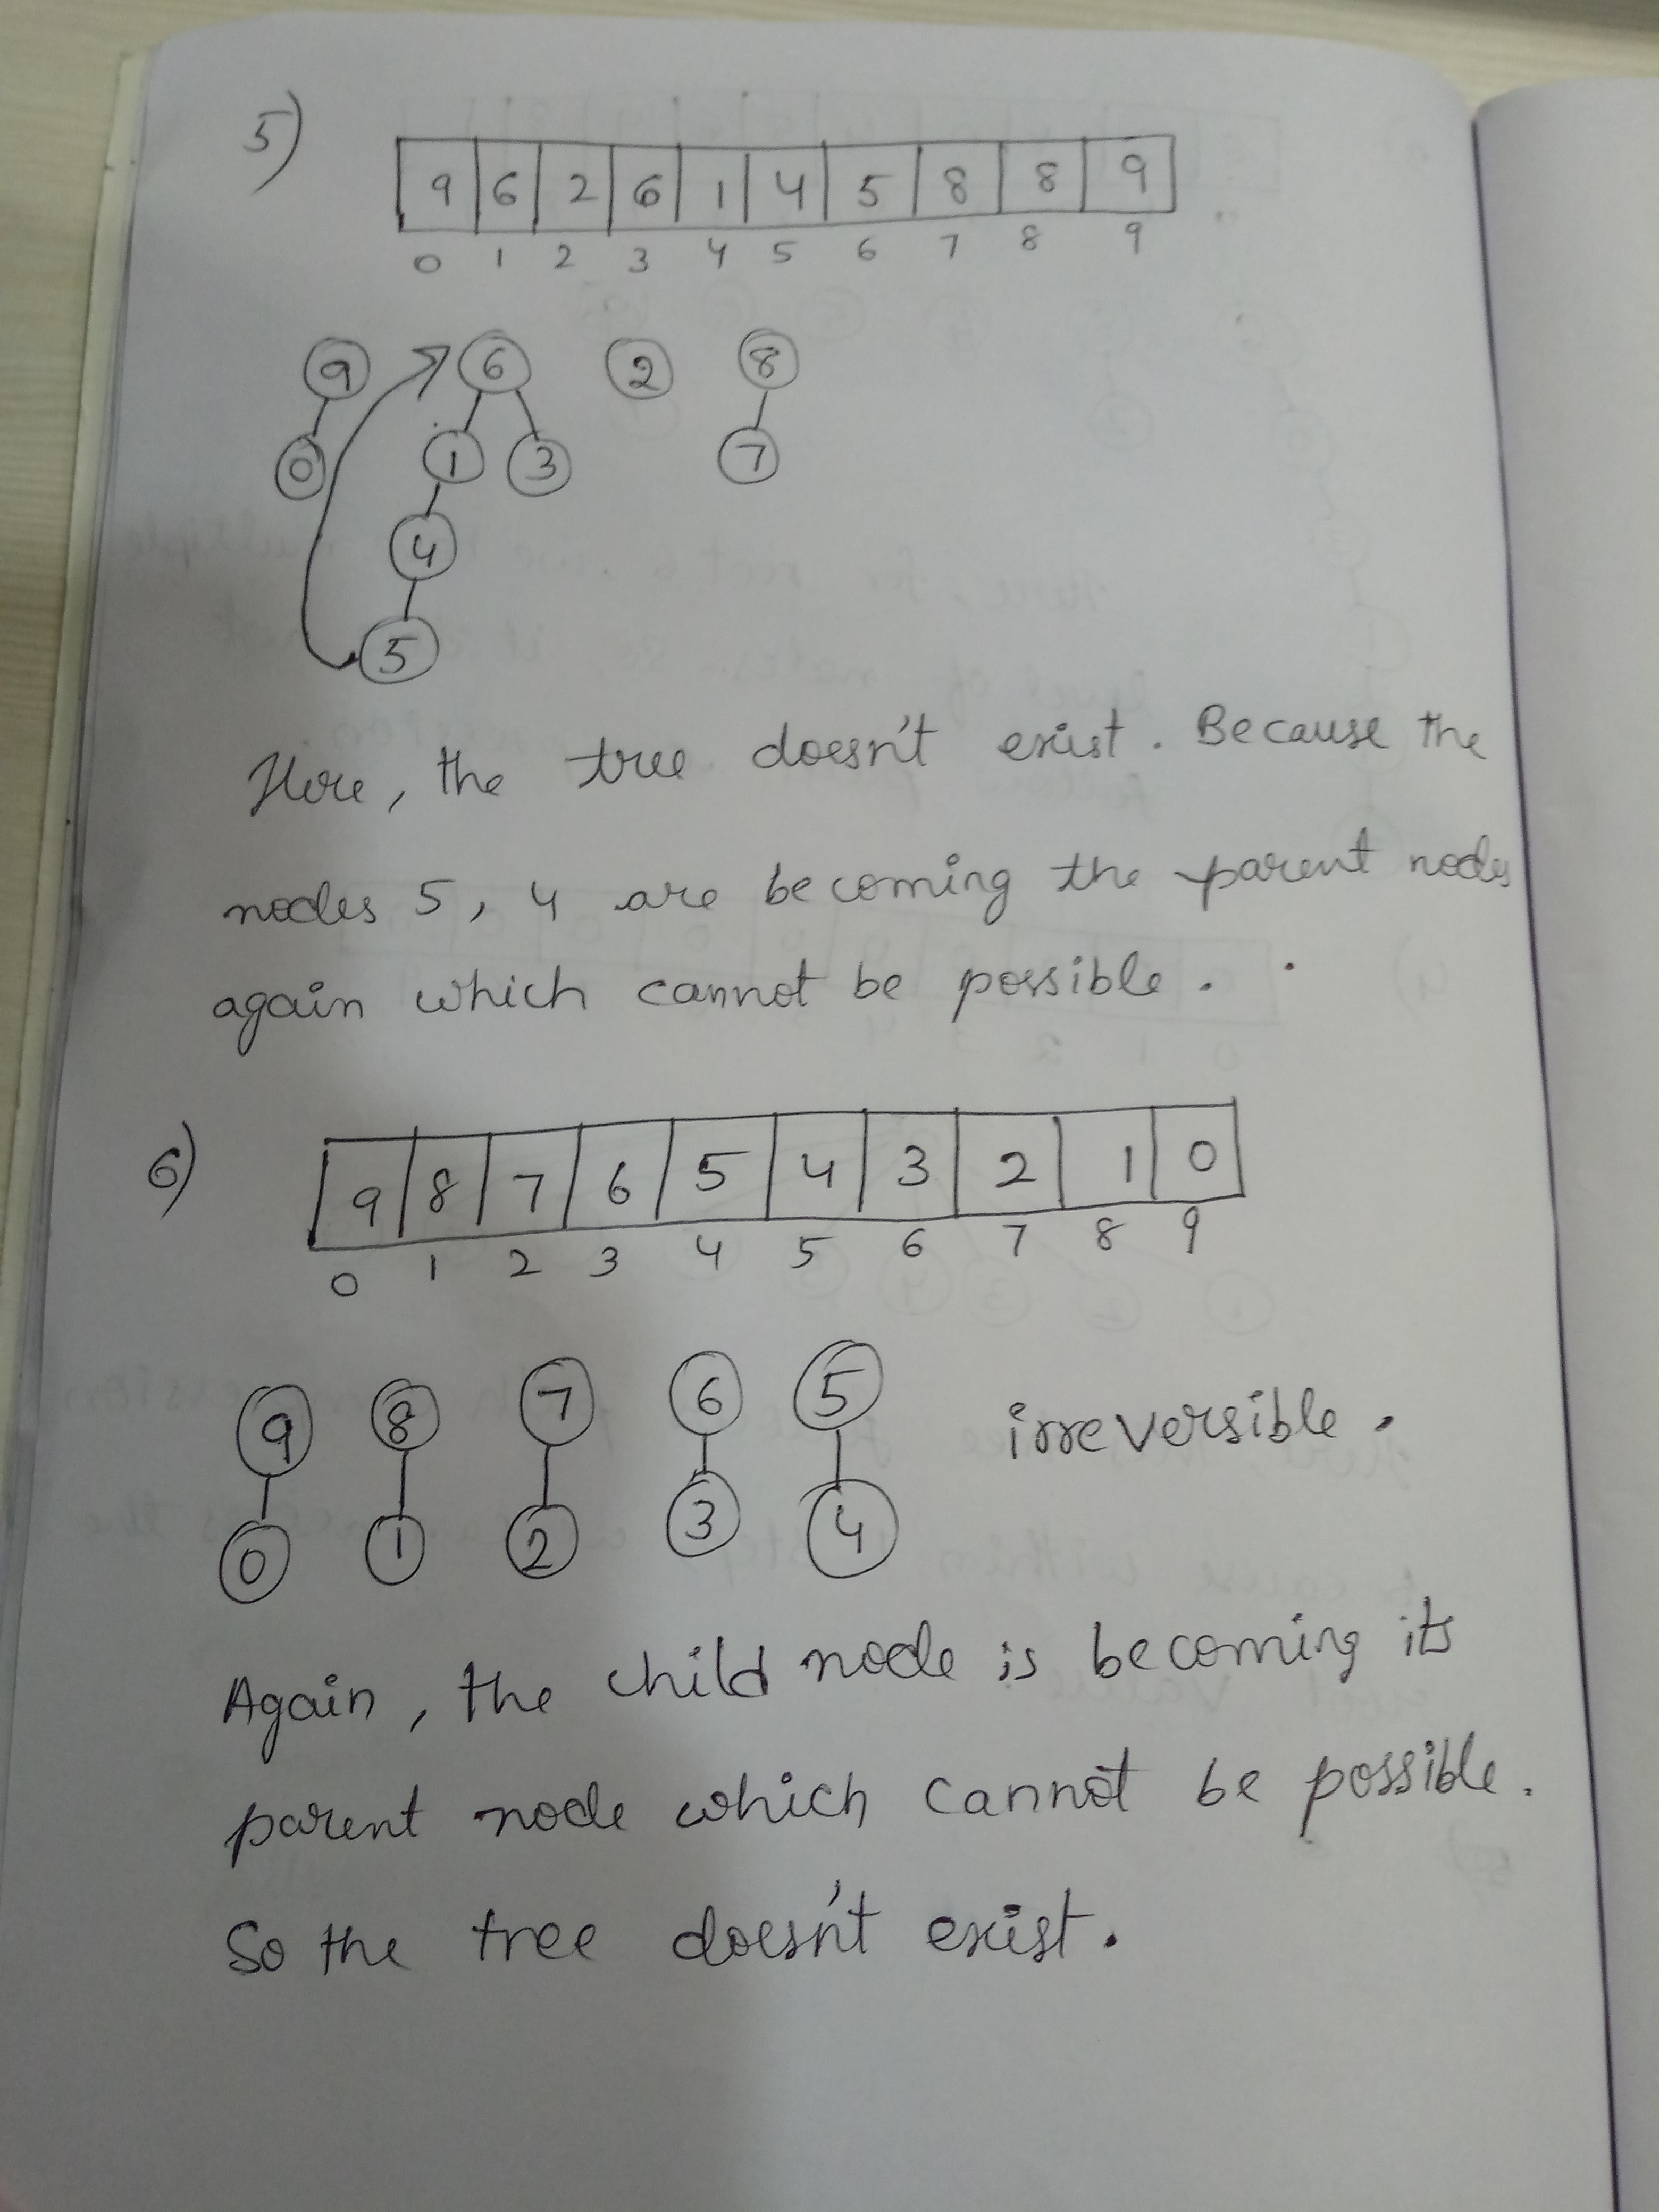 5)
9 6 2 6 1 4 5 8 8 9
0 1 2 3 4 5 6 7 8 9
9 6 2 8
0 1 3 7
4
5
Here, the tree doesn't exist. Because the
nodes 5, 4 are becoming the parent nodes
again which cannot be possible.
6)
9 8 7 6 5 4 3 2 1 0
0 1 2 3 4 5 6 7 8 9
9 8 7 6 5 irreversible.
0 1 2 3 4
Again, the child node is becoming its
parent node which cannot be possible.
So the tree doesn't exist.